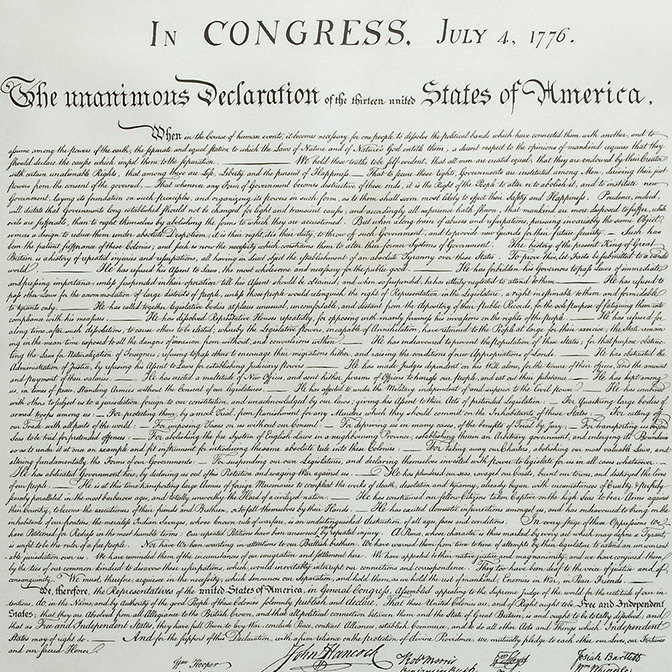 IN CONGRESS. JULY 4, 1776.
The unanimous Declaration of the thirteen united States of America.
When in the Course of human events, it becomes necessary for one people to dissolve the political bands which have connected them with another, and to
assume among the powers of the earth, the separate and equal station to which the Laws of Nature and of Nature's God entitle them, a decent respect to the opinions of mankind requires that they
should declare the causes which impel them to the separation. — We hold these truths to be self-evident, that all men are created equal, that they are endowed by their Creator
with certain unalienable Rights, that among these are Life, Liberty and the pursuit of Happiness. — That to secure these rights, Governments are instituted among Men, deriving their just
powers from the consent of the governed, — That whenever any Form of Government becomes destructive of these ends, it is the Right of the People to alter or to abolish it, and to institute new
Government, laying its foundation on such principles, and organizing its powers in such form, as to them shall seem most likely to effect their Safety and Happiness. Prudence, indeed,
will dictate that Governments long established should not be changed for light and transient causes; and accordingly all experience hath shewn, that mankind are more disposed to suffer, while
evils are sufferable, than to right themselves by abolishing the forms to which they are accustomed. But when a long train of abuses and usurpations, pursuing invariably the same Object,
evinces a design to reduce them under absolute Despotism, it is their right, it is their duty, to throw off such Government, and to provide new Guards for their future security. — Such has
been the patient sufferance of these Colonies; and such is now the necessity which constrains them to alter their former Systems of Government. The history of the present King of Great
Britain is a history of repeated injuries and usurpations, all having in direct object the establishment of an absolute Tyranny over these States. To prove this, let Facts be submitted to a candid
world. — He has refused his Assent to Laws, the most wholesome and necessary for the public good. — He has forbidden his Governors to pass Laws of immediate
and pressing importance, unless suspended in their operation till his Assent should be obtained; and when so suspended, he has utterly neglected to attend to them. — He has refused to
pass other Laws for the accommodation of large districts of people, unless those people would relinquish the right of Representation in the Legislature, a right inestimable to them and formidable
to tyrants only. — He has called together legislative bodies at places unusual, uncomfortable, and distant from the depository of their Public Records, for the sole purpose of fatiguing them into
compliance with his measures. — He has dissolved Representative Houses repeatedly, for opposing with manly firmness his invasions on the rights of the people. — He has refused for
a long time, after such dissolutions, to cause others to be elected; whereby the Legislative powers, incapable of Annihilation, have returned to the People at large for their exercise; the State remain
ing in the mean time exposed to all the dangers of invasion from without, and convulsions within. — He has endeavoured to prevent the population of these States; for that purpose obstruc
ting the Laws for Naturalization of Foreigners; refusing to pass others to encourage their migrations hither, and raising the conditions of new Appropriations of Lands. — He has obstructed the
Administration of Justice, by refusing his Assent to Laws for establishing Judiciary powers. — He has made Judges dependent on his Will alone, for the tenure of their offices, and the amount
and payment of their salaries. — He has erected a multitude of New Offices, and sent hither swarms of Officers to harrass our people, and eat out their substance. — He has kept among
us, in times of peace, Standing Armies without the Consent of our legislatures. — He has affected to render the Military independent of and superior to the Civil power. — He has combined
with others to subject us to a jurisdiction foreign to our constitution, and unacknowledged by our laws; giving his Assent to their Acts of pretended Legislation: — For Quartering large bodies of
armed troops among us: — For protecting them, by a mock Trial, from punishment for any Murders which they should commit on the Inhabitants of these States: — For cutting off
our Trade with all parts of the world: — For imposing Taxes on us without our Consent: — For depriving us in many cases, of the benefits of Trial by Jury: — For transporting us beyond
Seas to be tried for pretended offences — For abolishing the free System of English Laws in a neighbouring Province, establishing therein an Arbitrary government, and enlarging its Boundaries
so as to render it at once an example and fit instrument for introducing the same absolute rule into these Colonies: — For taking away our Charters, abolishing our most valuable Laws, and
altering fundamentally the Forms of our Governments: — For suspending our own Legislatures, and declaring themselves invested with power to legislate for us in all cases whatsoever. —
He has abdicated Government here, by declaring us out of his Protection and waging War against us. — He has plundered our seas, ravaged our Coasts, burnt our towns, and destroyed the lives
of our people. — He is at this time transporting large Armies of foreign Mercenaries to compleat the works of death, desolation and tyranny, already begun with circumstances of Cruelty & perfidy
scarcely paralleled in the most barbarous ages, and totally unworthy the Head of a civilized nation. — He has constrained our fellow Citizens taken Captive on the high Seas to bear Arms against
their Country, to become the executioners of their friends and Brethren, or to fall themselves by their Hands. — He has excited domestic insurrections amongst us, and has endeavoured to bring on the
inhabitants of our frontiers, the merciless Indian Savages, whose known rule of warfare, is an undistinguished destruction of all ages, sexes and conditions. In every stage of these Oppressions We
have Petitioned for Redress in the most humble terms: Our repeated Petitions have been answered only by repeated injury. A Prince, whose character is thus marked by every act which may define a Tyrant,
is unfit to be the ruler of a free people. Nor have We been wanting in attentions to our Brittish brethren. We have warned them from time to time of attempts by their legislature to extend an unwarrant
able jurisdiction over us. We have reminded them of the circumstances of our emigration and settlement here. We have appealed to their native justice and magnanimity, and we have conjured them
by the ties of our common kindred to disavow these usurpations, which, would inevitably interrupt our connections and correspondence. They too have been deaf to the voice of justice and of
consanguinity. We must, therefore, acquiesce in the necessity, which denounces our Separation, and hold them, as we hold the rest of mankind, Enemies in War, in Peace Friends. —
We, therefore, the Representatives of the united States of America, in General Congress, Assembled, appealing to the Supreme Judge of the world for the rectitude of our in
tentions, do, in the Name, and by Authority of the good People of these Colonies, solemnly publish and declare, That these United Colonies are, and of Right ought to be Free and Independent
States; that they are Absolved from all Allegiance to the British Crown, and that all political connection between them and the State of Great Britain, is and ought to be totally dissolved; and
that as Free and Independent States, they have full Power to levy War, conclude Peace, contract Alliances, establish Commerce, and to do all other Acts and Things which Independent
States may of right do. — And for the support of this Declaration, with a firm reliance on the protection of divine Providence, we mutually pledge to each other our Lives, our Fortunes
and our sacred Honor.
Wm Hooper John Hancock Rob Morris Josiah Bartlett
Benjamin Rush Wm Whipple